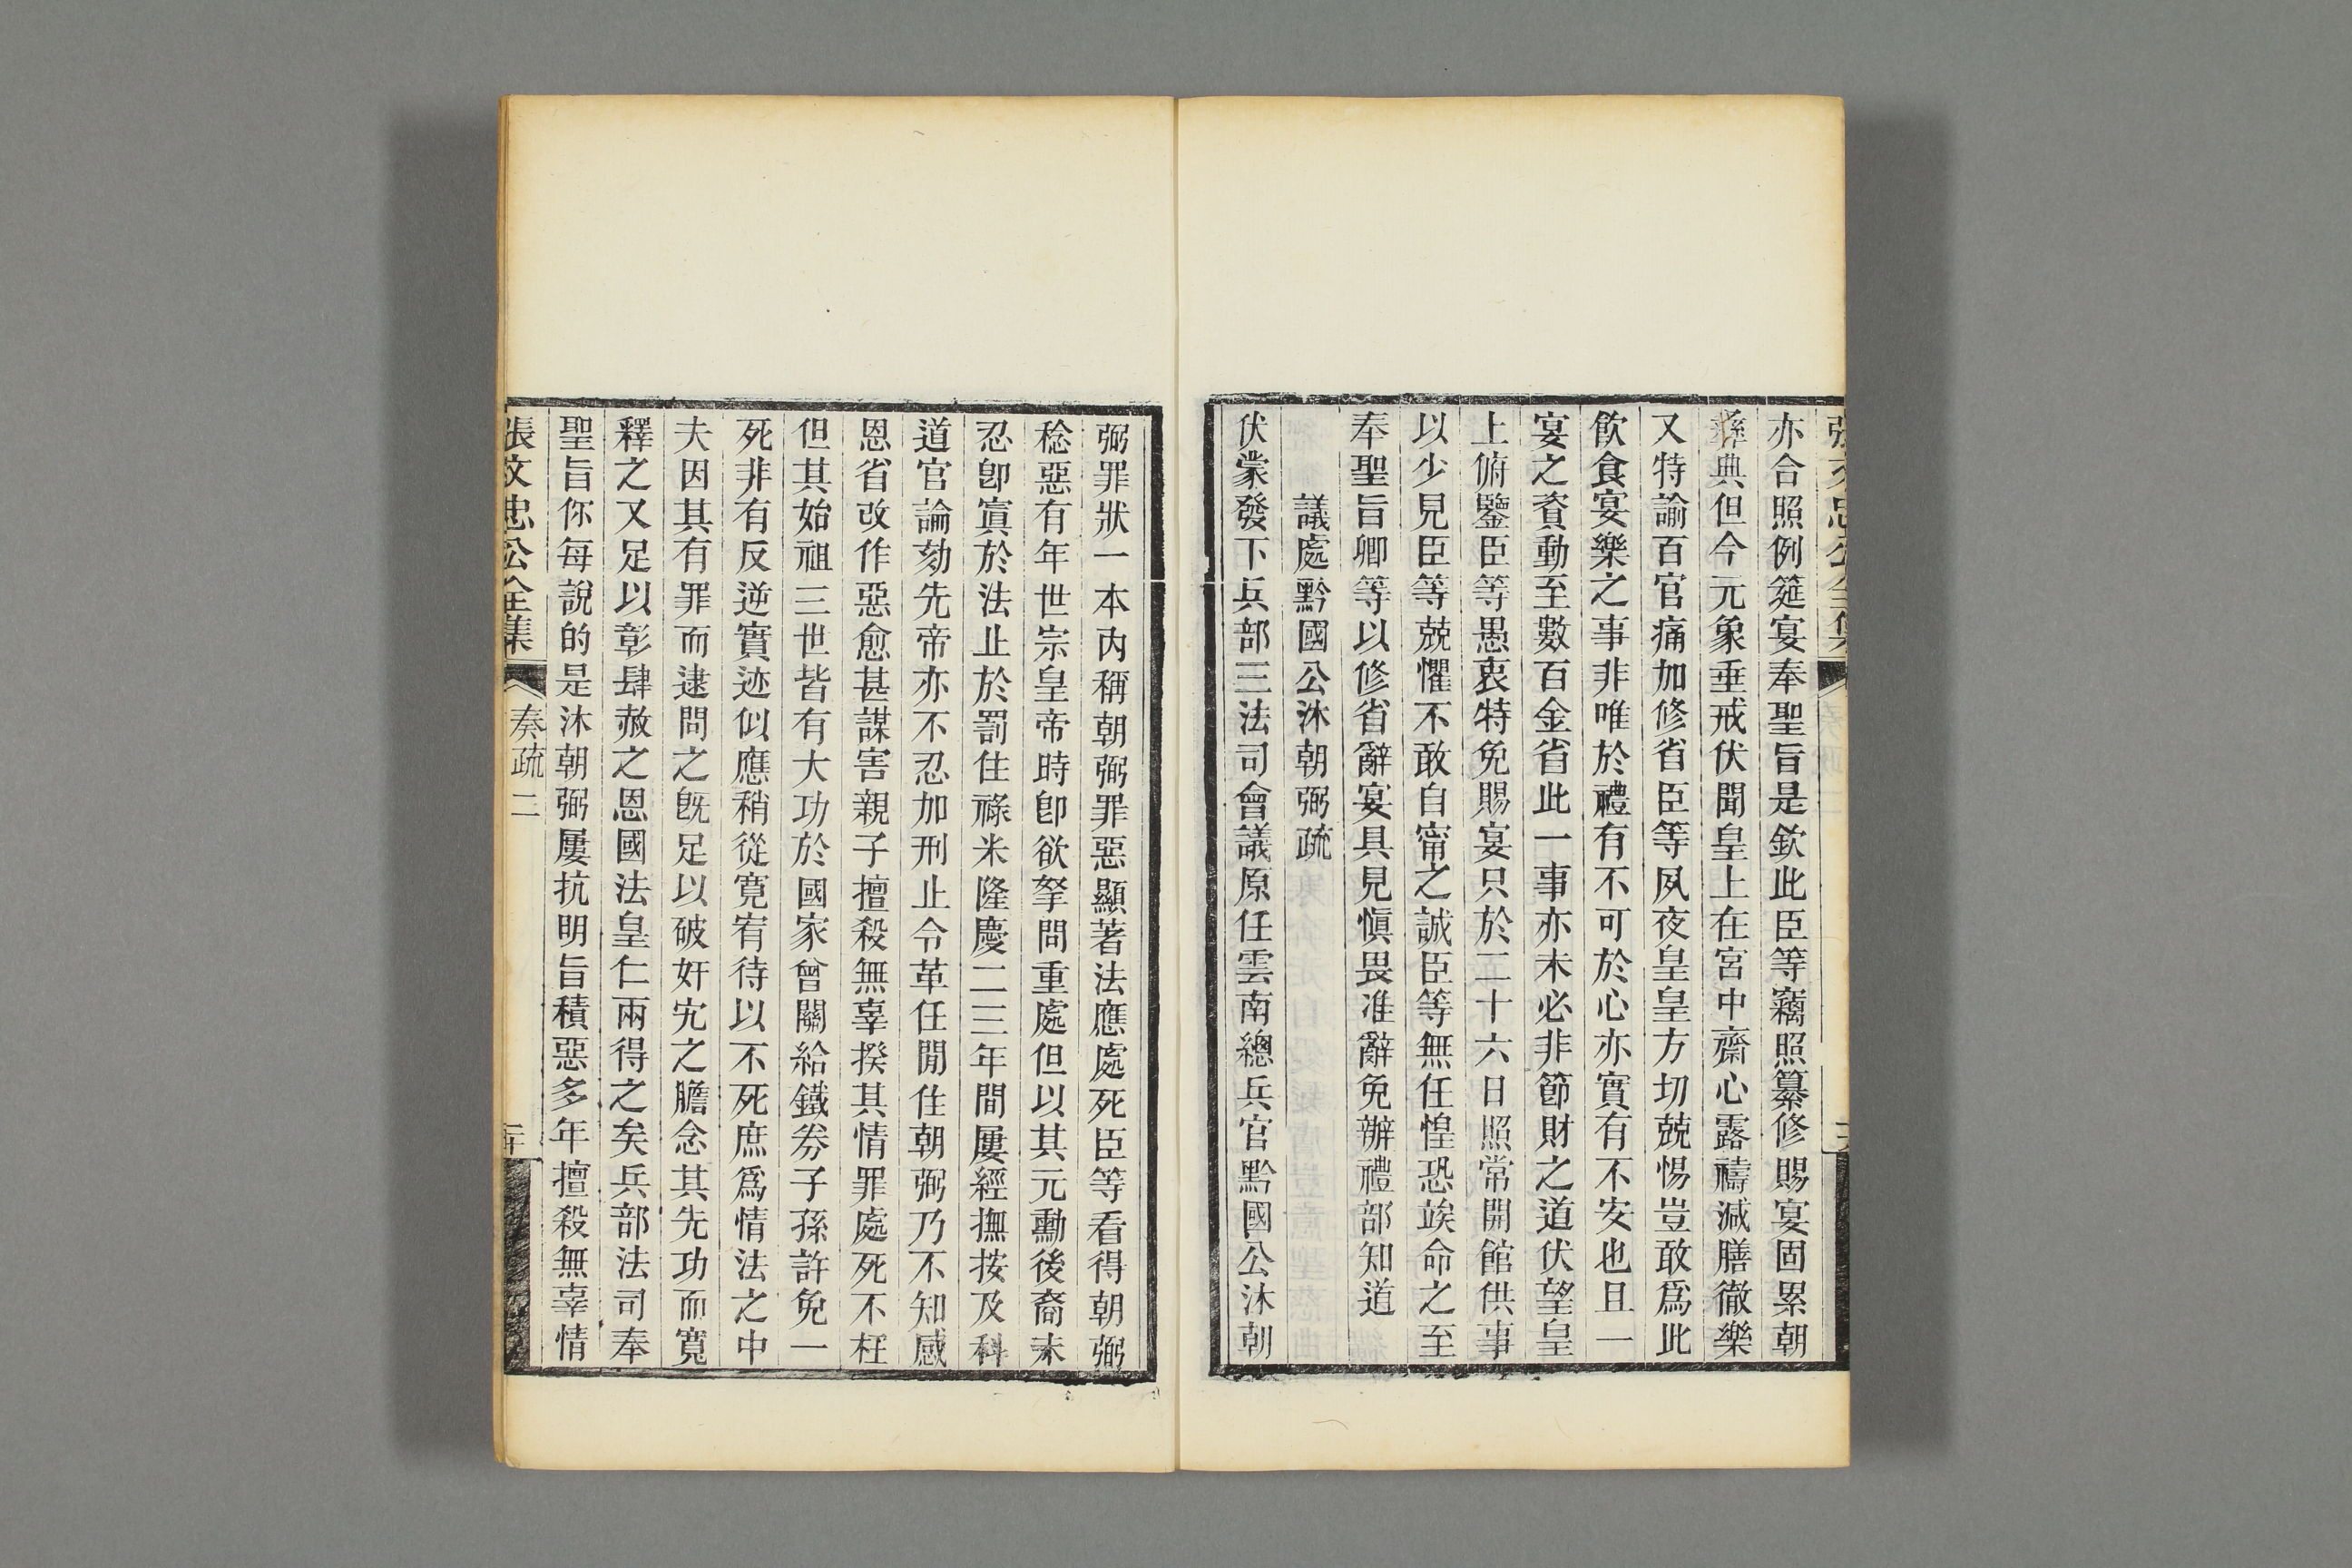 亦合照例筵宴奉聖旨是欽此臣等竊照纂修賜宴固累朝
彝典但今元象垂戒伏聞皇上在宮中齋心露禱減膳徹樂
又特諭百官痛加修省臣等夙夜皇皇方切兢惕豈敢爲此
飲食宴樂之事非唯於禮有不可於心亦實有不安也且一
宴之賚動至數百金省此一事亦未必非節財之道伏望皇
上俯鑒臣等愚衷特免賜宴只於二十六日照常開館供事
以少見臣等兢懼不敢自甯之誠臣等無任惶恐竢命之至
奉聖旨卿等以修省辭宴具見愼畏准辭免辦禮部知道
議處黔國公沐朝弼疏
伏蒙發下兵部三法司會議原任雲南總兵官黔國公沐朝
弼罪狀一本內稱朝弼罪惡顯著法應處死臣等看得朝弼
稔惡有年世宗皇帝時卽欲拏問重處但以其元勳後裔未
忍卽寘於法止於罰住祿米隆慶二三年間屢經撫按及科
道官論劾先帝亦不忍加刑止令革任閒住朝弼乃不知感
恩省改作惡愈甚謀害親子擅殺無辜揆其情罪處死不枉
但其始祖三世皆有大功於國家曾關給鐵券子孫許免一
死非有反逆實迹似應稍從寛宥待以不死庶爲情法之中
夫因其有罪而逮問之旣足以破奸宄之膽念其先功而寬
釋之又足以彰肆赦之恩國法皇仁兩得之矣兵部法司奉
聖旨你每說的是沐朝弼屢抗明旨積惡多年擅殺無辜情
張文忠公全集
奏疏二